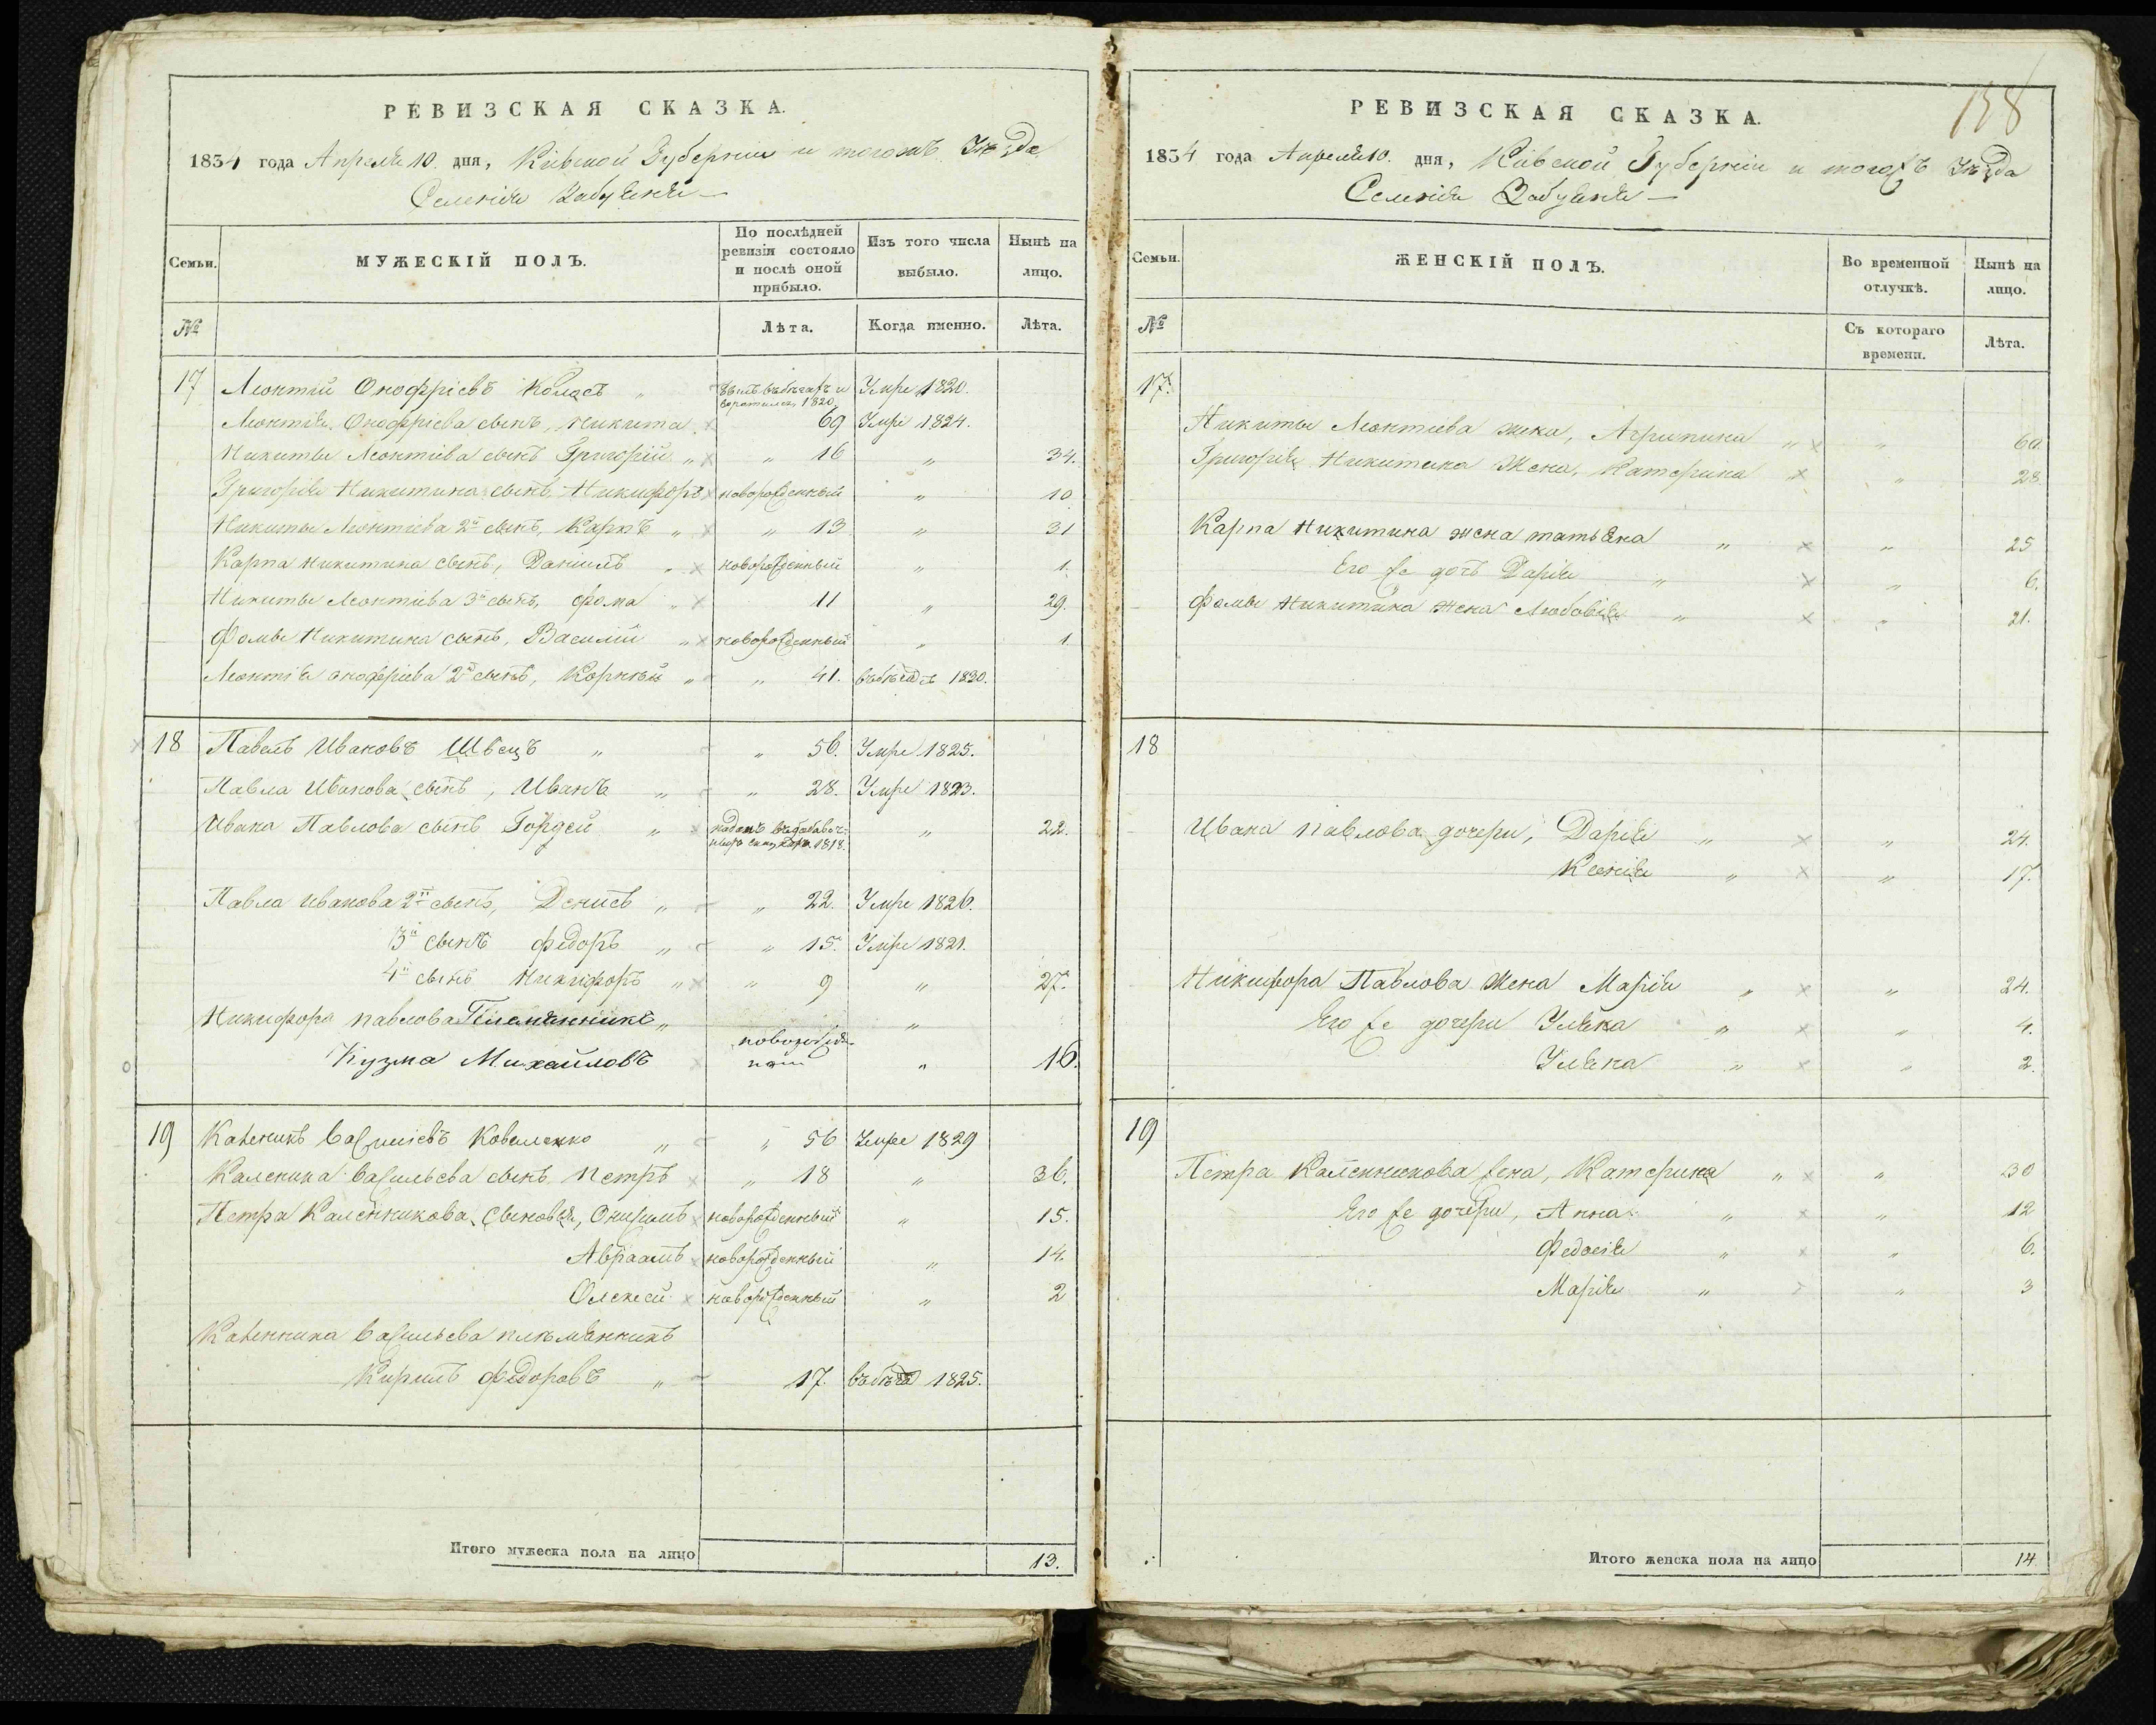 РЕВИЗСКАЯ СКАЗКА.
1834 года Апреля 10. дня, Кіевской Губерніи и тогожъ Уѣзда
Селенія Забуянья
Семьи.
МУЖЕСКІЙ ПОЛЪ.
По послѣдней ревизіи состояло и послѣ оной прибыло.
Изъ того числа выбыло.
Нынѣ на лицо.
№
Лѣта.
Когда именно.
Лѣта.
17 Леонтій Онофріевъ Колосъ „ былъ въ бѣгахъ и воротился 1820. Умре 1820.
Леонтія Онофріева сынъ, Никита 69 Умре 1824.
Никиты Леонтіева сынъ Григорій „ „ 16 „ 34.
Григорія Никитина сынъ Никифоръ новорожденный „ 10
Никиты Леонтіева 2й сынъ, Карпъ „ „ 13 „ 31
Карпа Никитина сынъ, Даніилъ „ новорожденный „ 1.
Никиты Леонтіева 3й сынъ, Фома „ 11 „ 29.
Фомы Никитина сынъ, Василій „ новорожденный „ 1
Леонтія Онофріева 2й сынъ, Корней „ „ 41. въ бѣгахъ 1830.
18 Павелъ Ивановъ Швецъ „ „ 56. Умре 1825.
Павла Иванова сынъ, Иванъ „ „ 28. Умре 1823.
Ивана Павлова сынъ Гордей „ поданъ въ добавоч- 1818. „ 22.
Павла Иванова 2й сынъ, Денисъ „ „ 22. Умре 1826.
3й сынъ Федоръ „ „ 15. Умре 1821.
4й сынъ Никифоръ „ „ 9 „ 27.
Никифора Павлова Племянникъ „ „
Кузма Михайловъ новорожден- „ 16.
19 Каленикъ Васильевъ Коваленко „ „ 56 Умре 1829
Каленика Васильева сынъ Петръ „ 18 „ 36.
Петра Каленникова, Сыновья, Онисимъ новорожденный „ 15.
Авраамъ новорожденный „ 14.
Олексей новорожденный „ 2
Каленника Васильева племянникъ
Кирилъ Федоровъ „ 17. въ бѣгахъ 1825.
Итого мужеска пола на лицо 13.
158
РЕВИЗСКАЯ СКАЗКА.
1834 года Апреля 10. дня, Кіевской Губерніи и тогожъ Уѣзда
Селенія Забуянья
Семьи.
ЖЕНСКІЙ ПОЛЪ.
Во временной отлучкѣ.
Нынѣ на лицо.
№
Съ котораго времени.
Лѣта.
17.
Никиты Леонтіева жена, Агрипина „ „ 60.
Григорія Никитина Жена, Катерина „ „ 28.
Карпа Никитина жена татьяна „ „ 25
Его же дочь Дарія „ „ 6.
Фомы Никитина жена Любовія „ „ 21.
18
Ивана Павлова дочери, Дарія „ „ 24.
Ксенія „ „ 17.
Никифора Павлова Жена Марія „ „ 24.
Его же дочери Уляна „ „ 4.
Уляна „ „ 2.
19
Петра Каленникова жена, Катерина „ „ 30
Его же дочери, Анна „ „ 12
Федосія „ „ 6.
Марія „ „ 3
Итого женска пола на лицо 14.